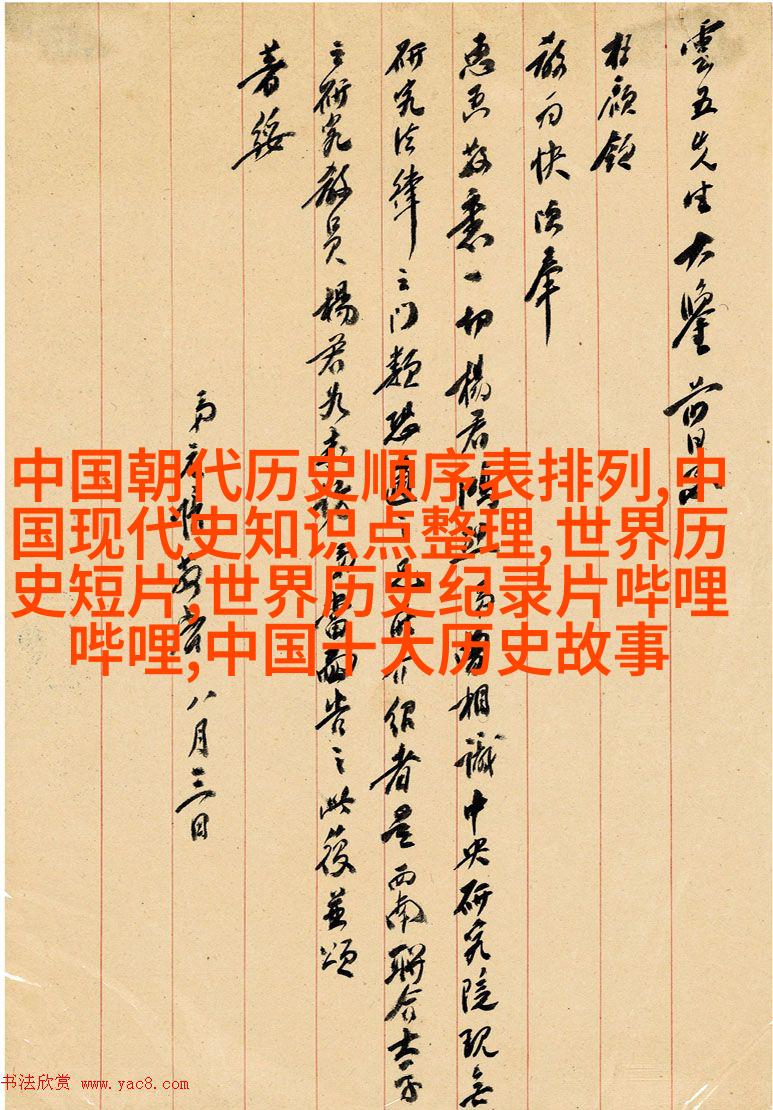 雲五先生大鑒 前日
枉顧領
教为快 頃奉
惠书敬悉一切 楊君鴻 相識 中央研究院現無
研究法律之門類 恐 介绍者是西南聯合大
之研究教員 楊君 告之 此復並頌
著綏
弟 敬啓 八月三日
中国朝代历史顺序表排列,中
国现代史知识点整理,世界历
史短片,世界历史纪录片哔哩
哔哩,中国十大历史故事
书法欣赏 www.yac8.com